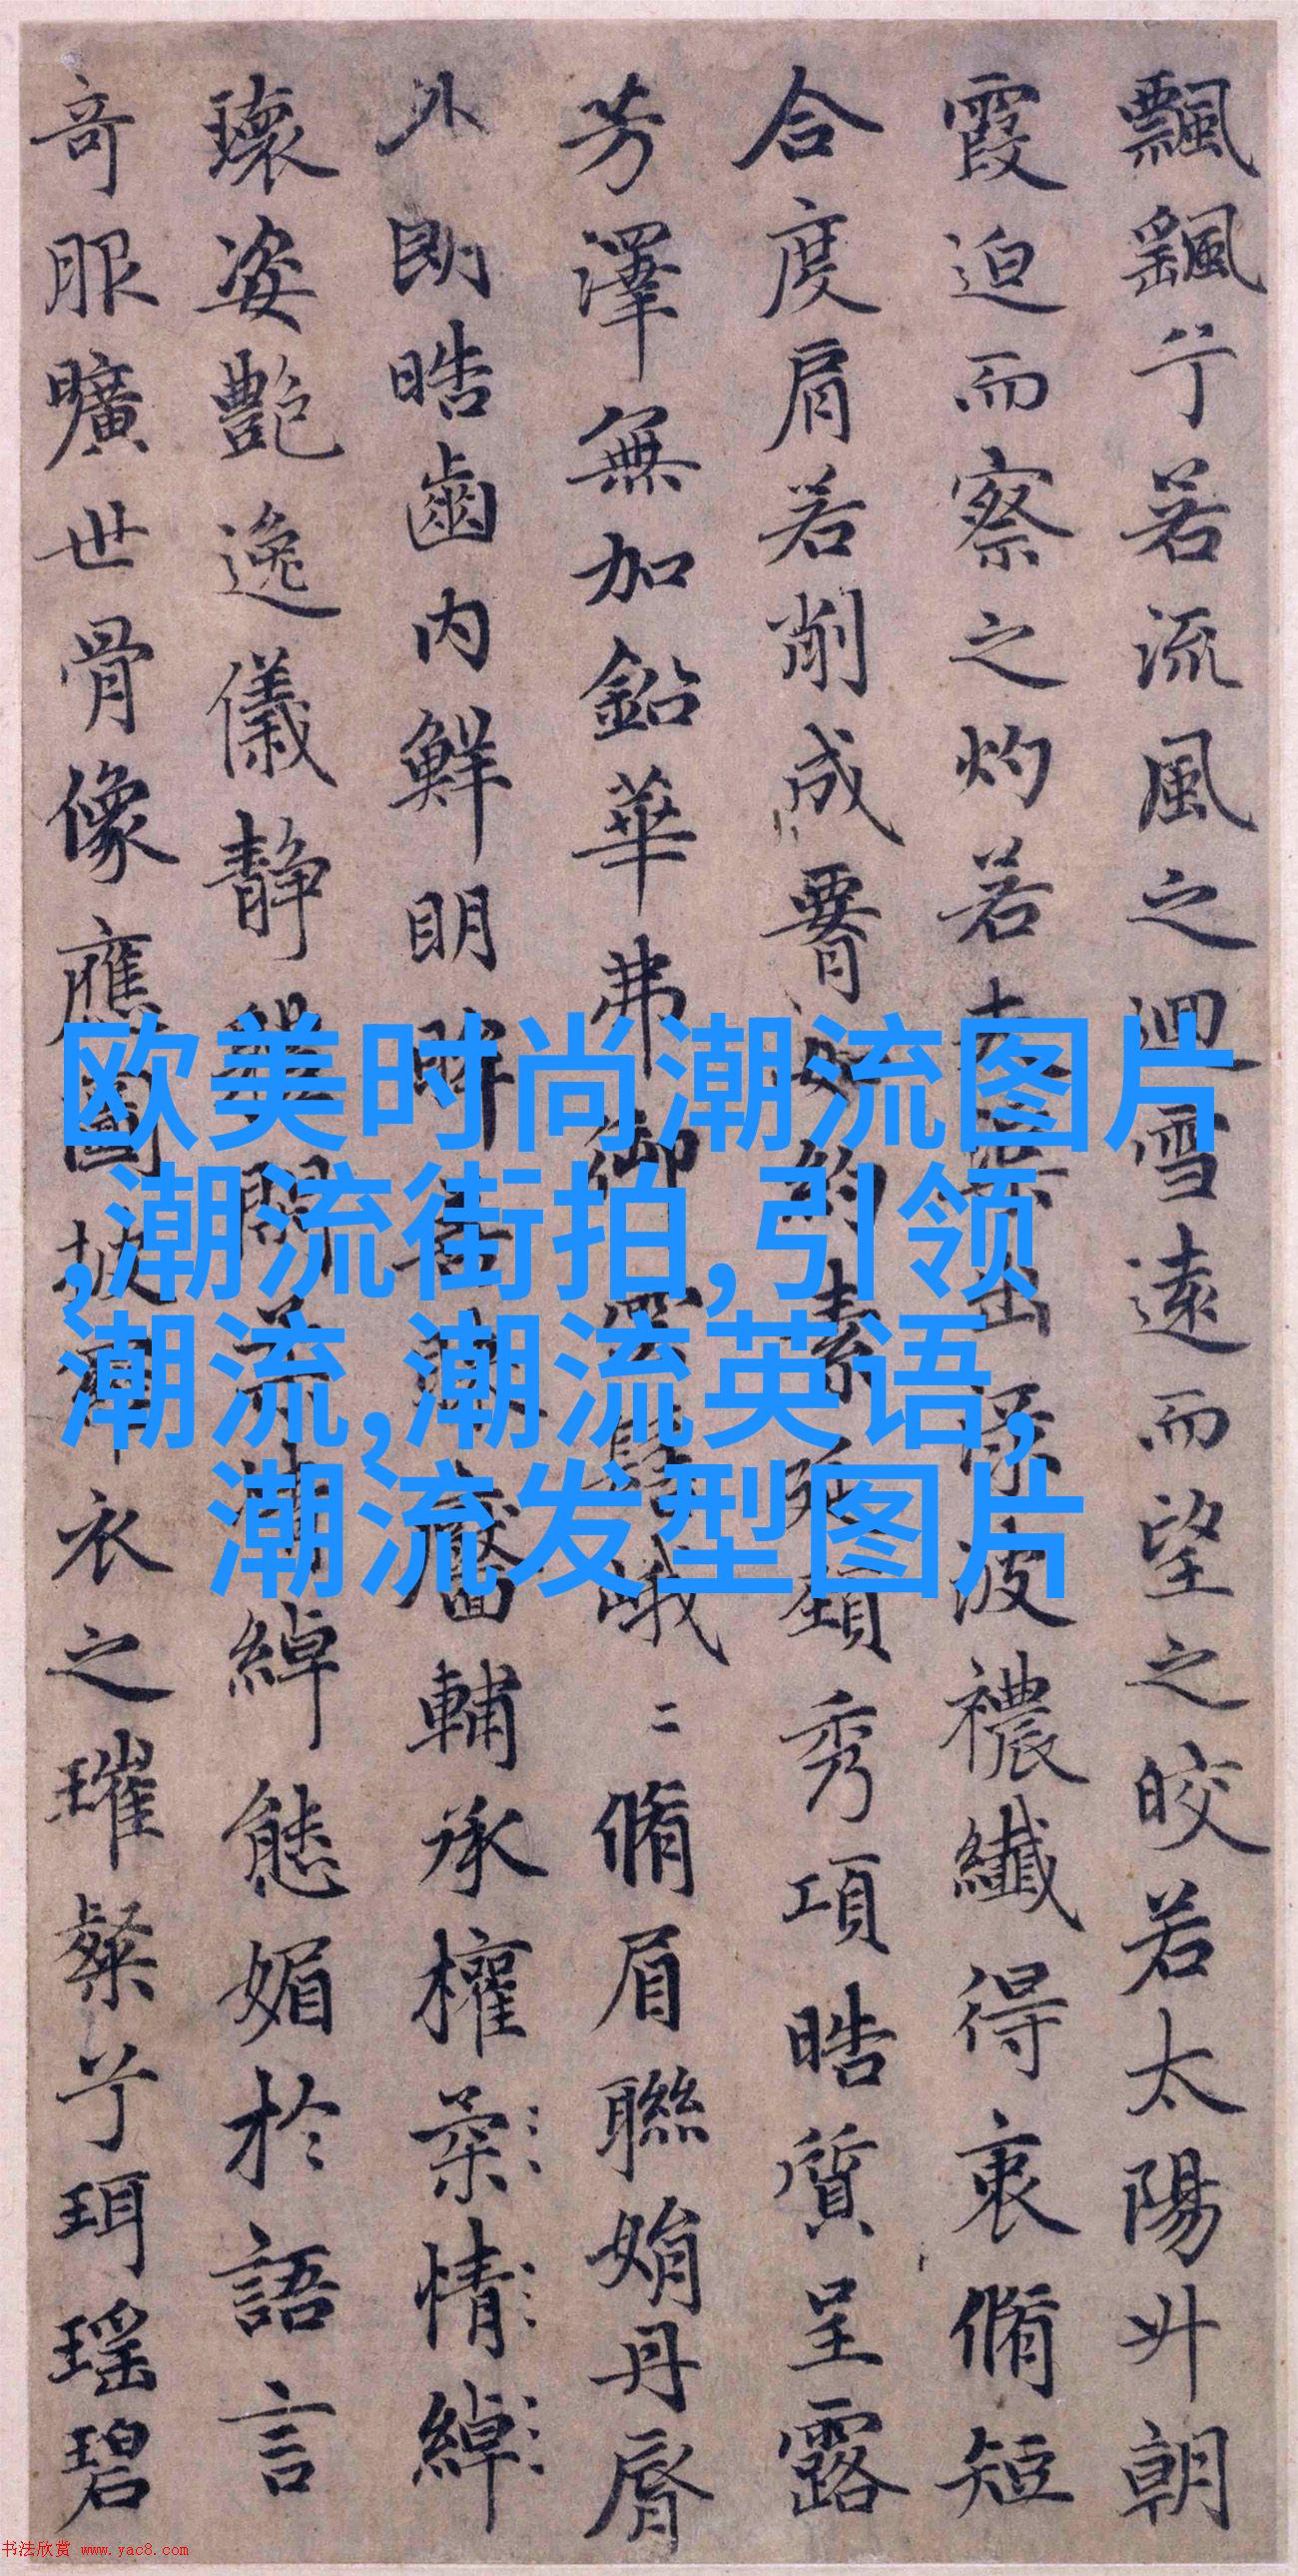 飄飖兮若流風之迴雪遠而望之皎若太陽升朝
霞迫而察之灼若夫出淥波襛纖得衷脩短
合度肩若削成要如約素延頸秀項皓質呈露
芳澤無加鉛華弗御髻峨二脩眉聯娟丹脣
外朗皓齒内鮮明眸善睞靨輔承權柔情綽
瓌姿艶逸儀靜體閑柔情綽態媚於語言
奇服曠世骨像應圖披羅衣之璀粲兮珥瑤碧
欧美时尚潮流图片
,潮流街拍,引领
潮流,潮流英语,
潮流发型图片
书法欣赏 www.yac8.com